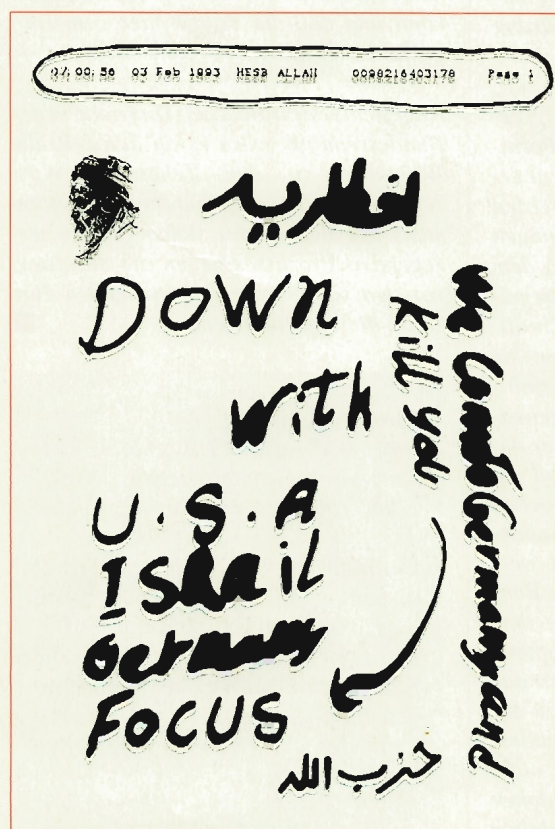 07:00:56 03 Feb 1993 HESB ALLAH 0098216403178 Page 1
Down
with
U.S.A
ISRail
Germany
FOCUS
We Comto Germany and
kill you
حزب الله